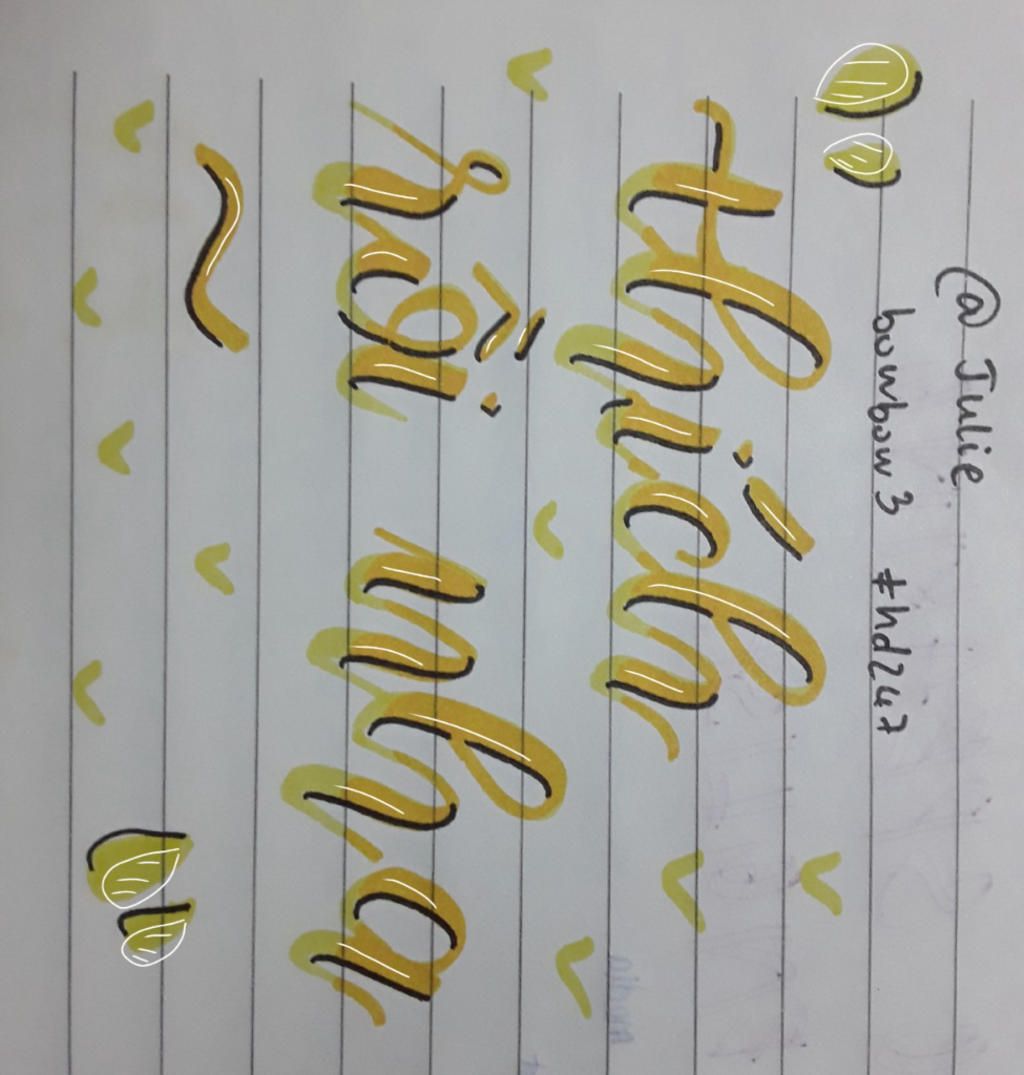 @Julie
bowbow3 #hd247
thích
rồi nha
~